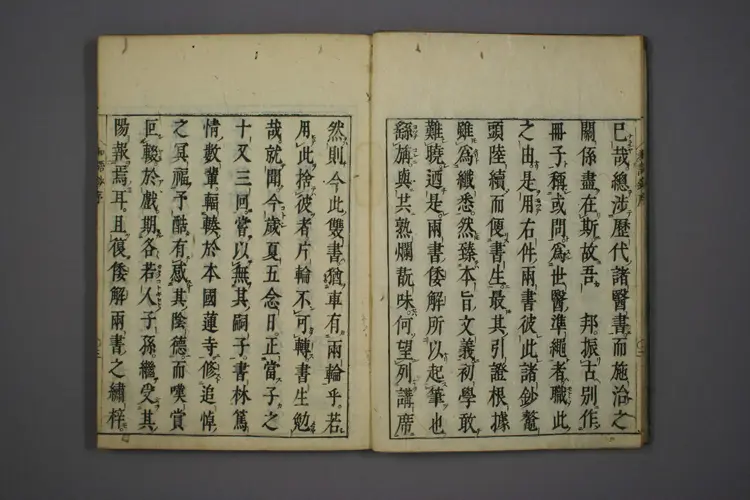 已哉總涉歷代諸醫書而施治之
關係盡在斯故吾 邦振古別作
冊子稱或問爲世醫準繩者職此
之由是用右件兩書彼此諸鈔鼇
頭陸續而便書生最其引證根據
雖爲纖悉然臻本旨文義初學敢
難曉迺是兩書倭解所以起筆也
繇斾與其熟爛翫味何望列講席
然則今此雙書猶車有兩輪乎若
用此捨彼者片輪不可轉書生勉
哉就聞今歲夏五念日正當子之
十又三回當以無其嗣子書林篤
情數輩輻輳於本國蓮寺修追悼
之冥福予酷有感其陰德而嘆賞
叵輟於戲期各若人子孫繼受其
陽報焉耳且復倭解兩書之繡梓